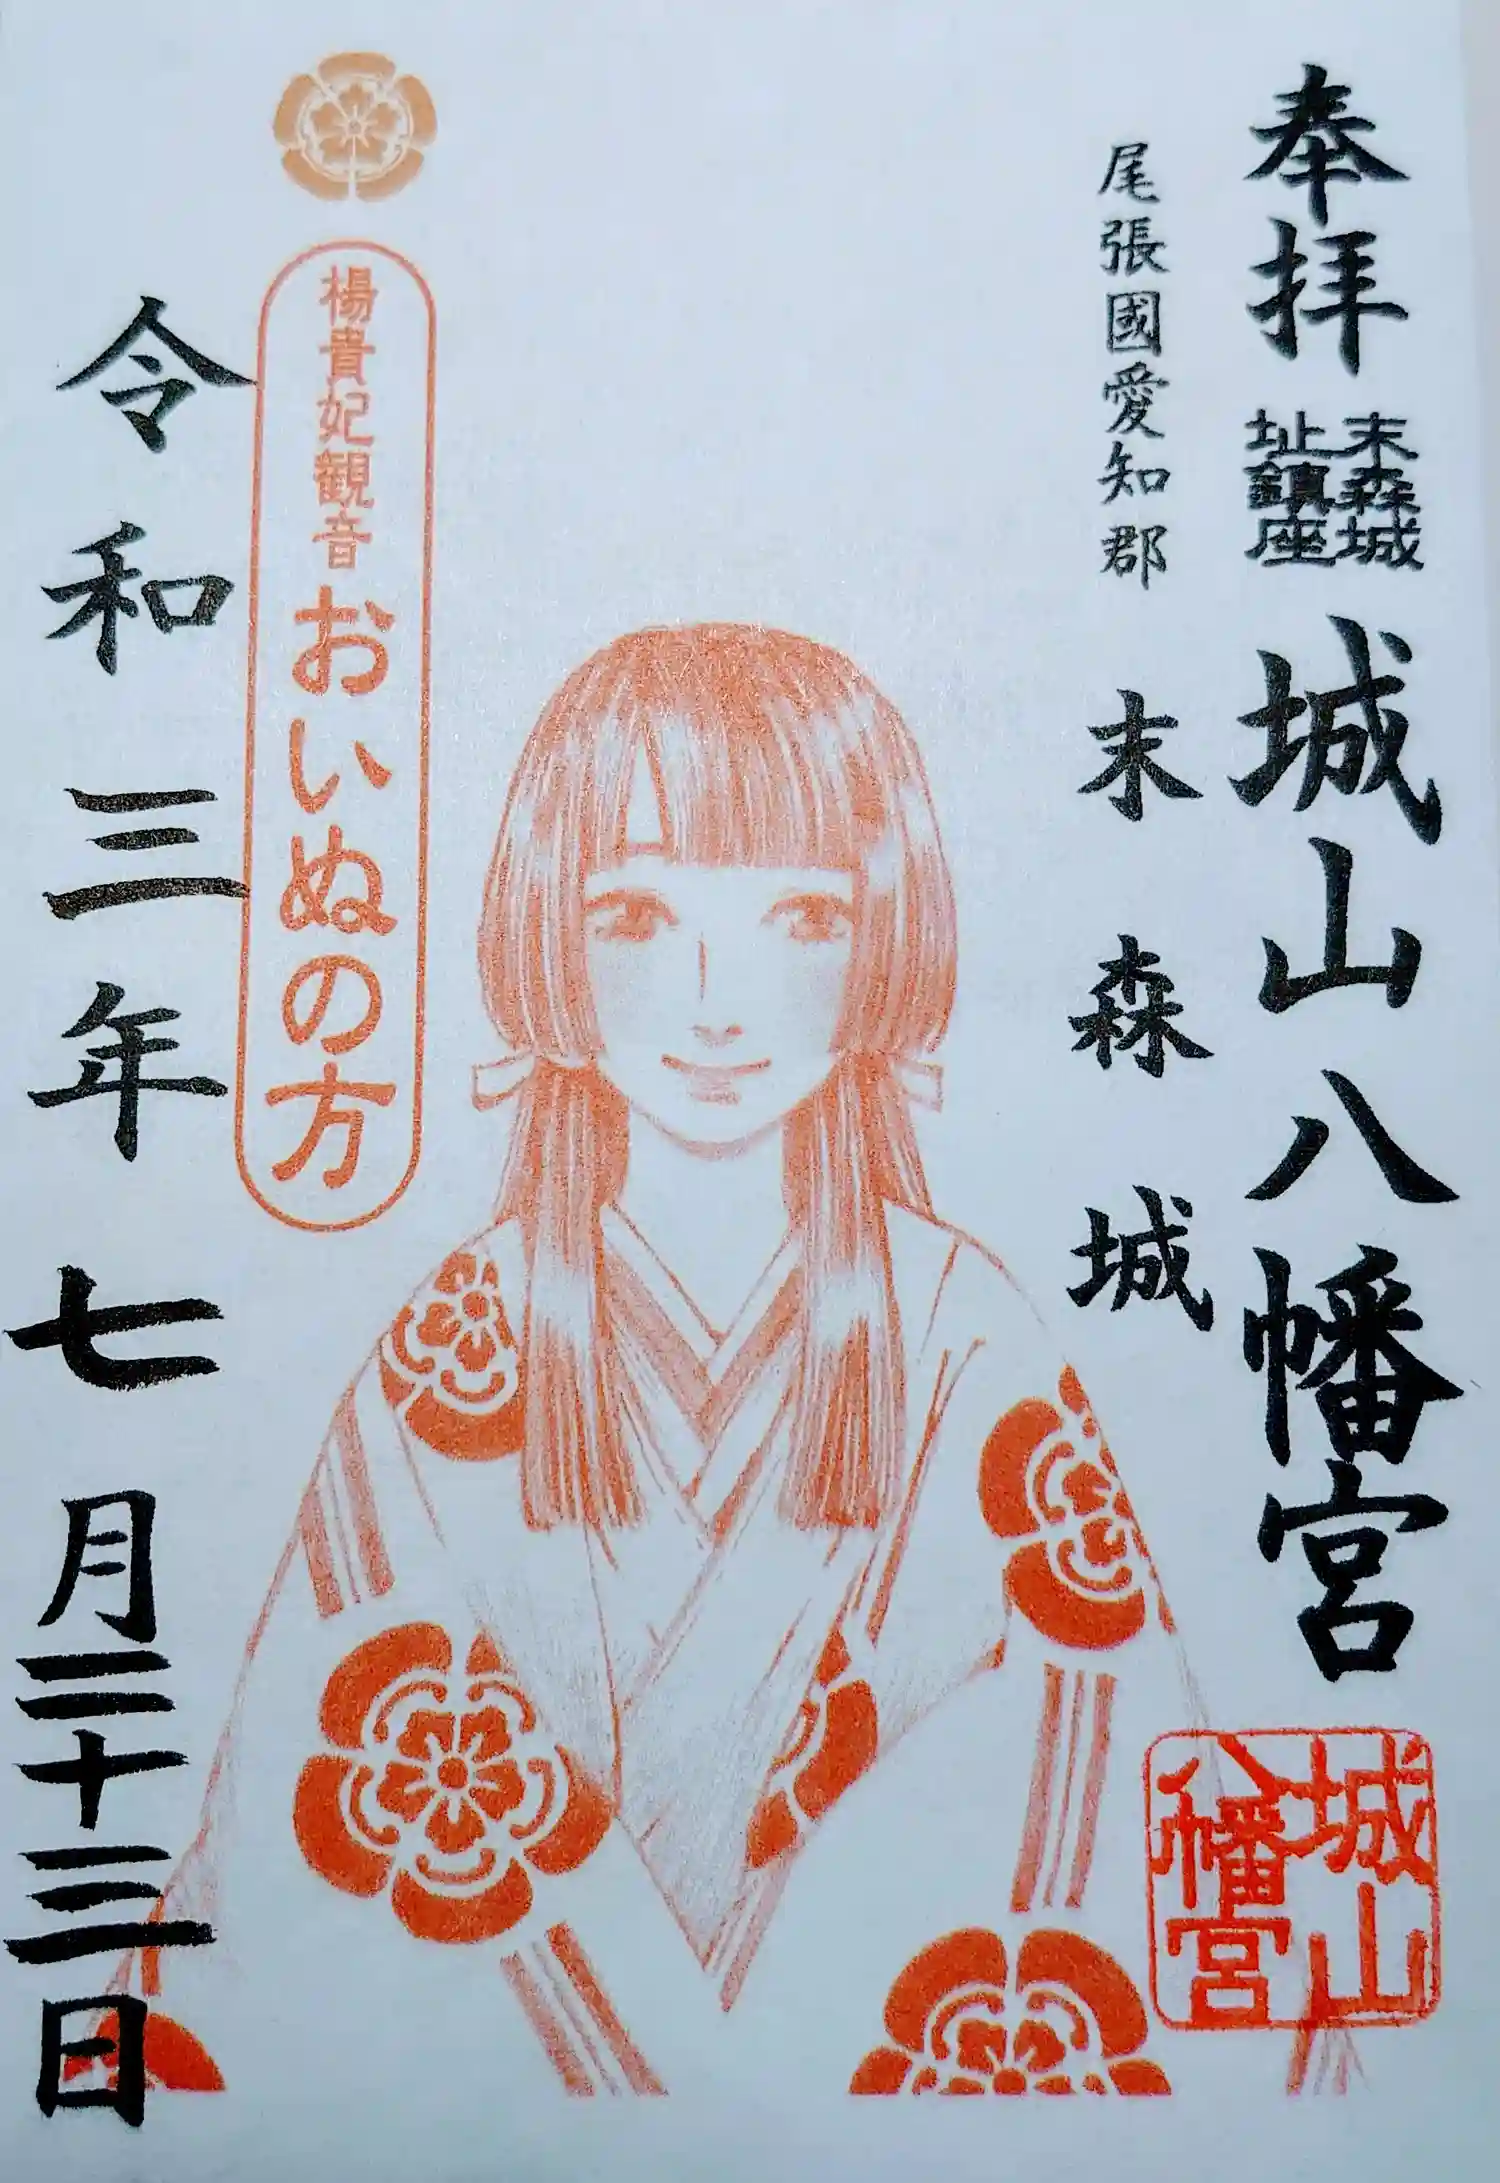 奉拝
末森城
址鎮座
城山八幡宮
尾張國愛知郡
末森城
城山
八幡宮
楊貴妃観音
おいぬの方
令和三年七月二十三日